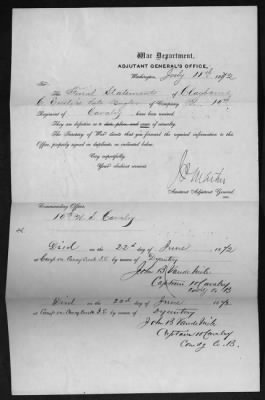 War Department,
ADJUTANT GENERAL'S OFFICE,
Washington, July 11th, 1872
To
The Final Statements of
C late of Company B. 10th
Regiment of Cavalry have been received.
They are defective as to date, place and cause of casualty.
The Secretary of War directs that you forward the required information to this
Office, properly signed in duplicate, as indicated below.
Very respectfully,
Your obedient servant,
Assistant Adjutant General.
Commanding Officer
10th U.S. Cavalry
Died on the 22d day of June 1872
at Camp on Cache Creek I.T. by reason of Dysentery
John B. VandeWiele
Captain 10 Cavalry
Comdg Co. B
Died on the 22d day of June 1872
at Camp on Cache Creek I.T. by reason of Dysentery
John B. VandeWiele
Captain 10 Cavalry
Comdg Co. B.